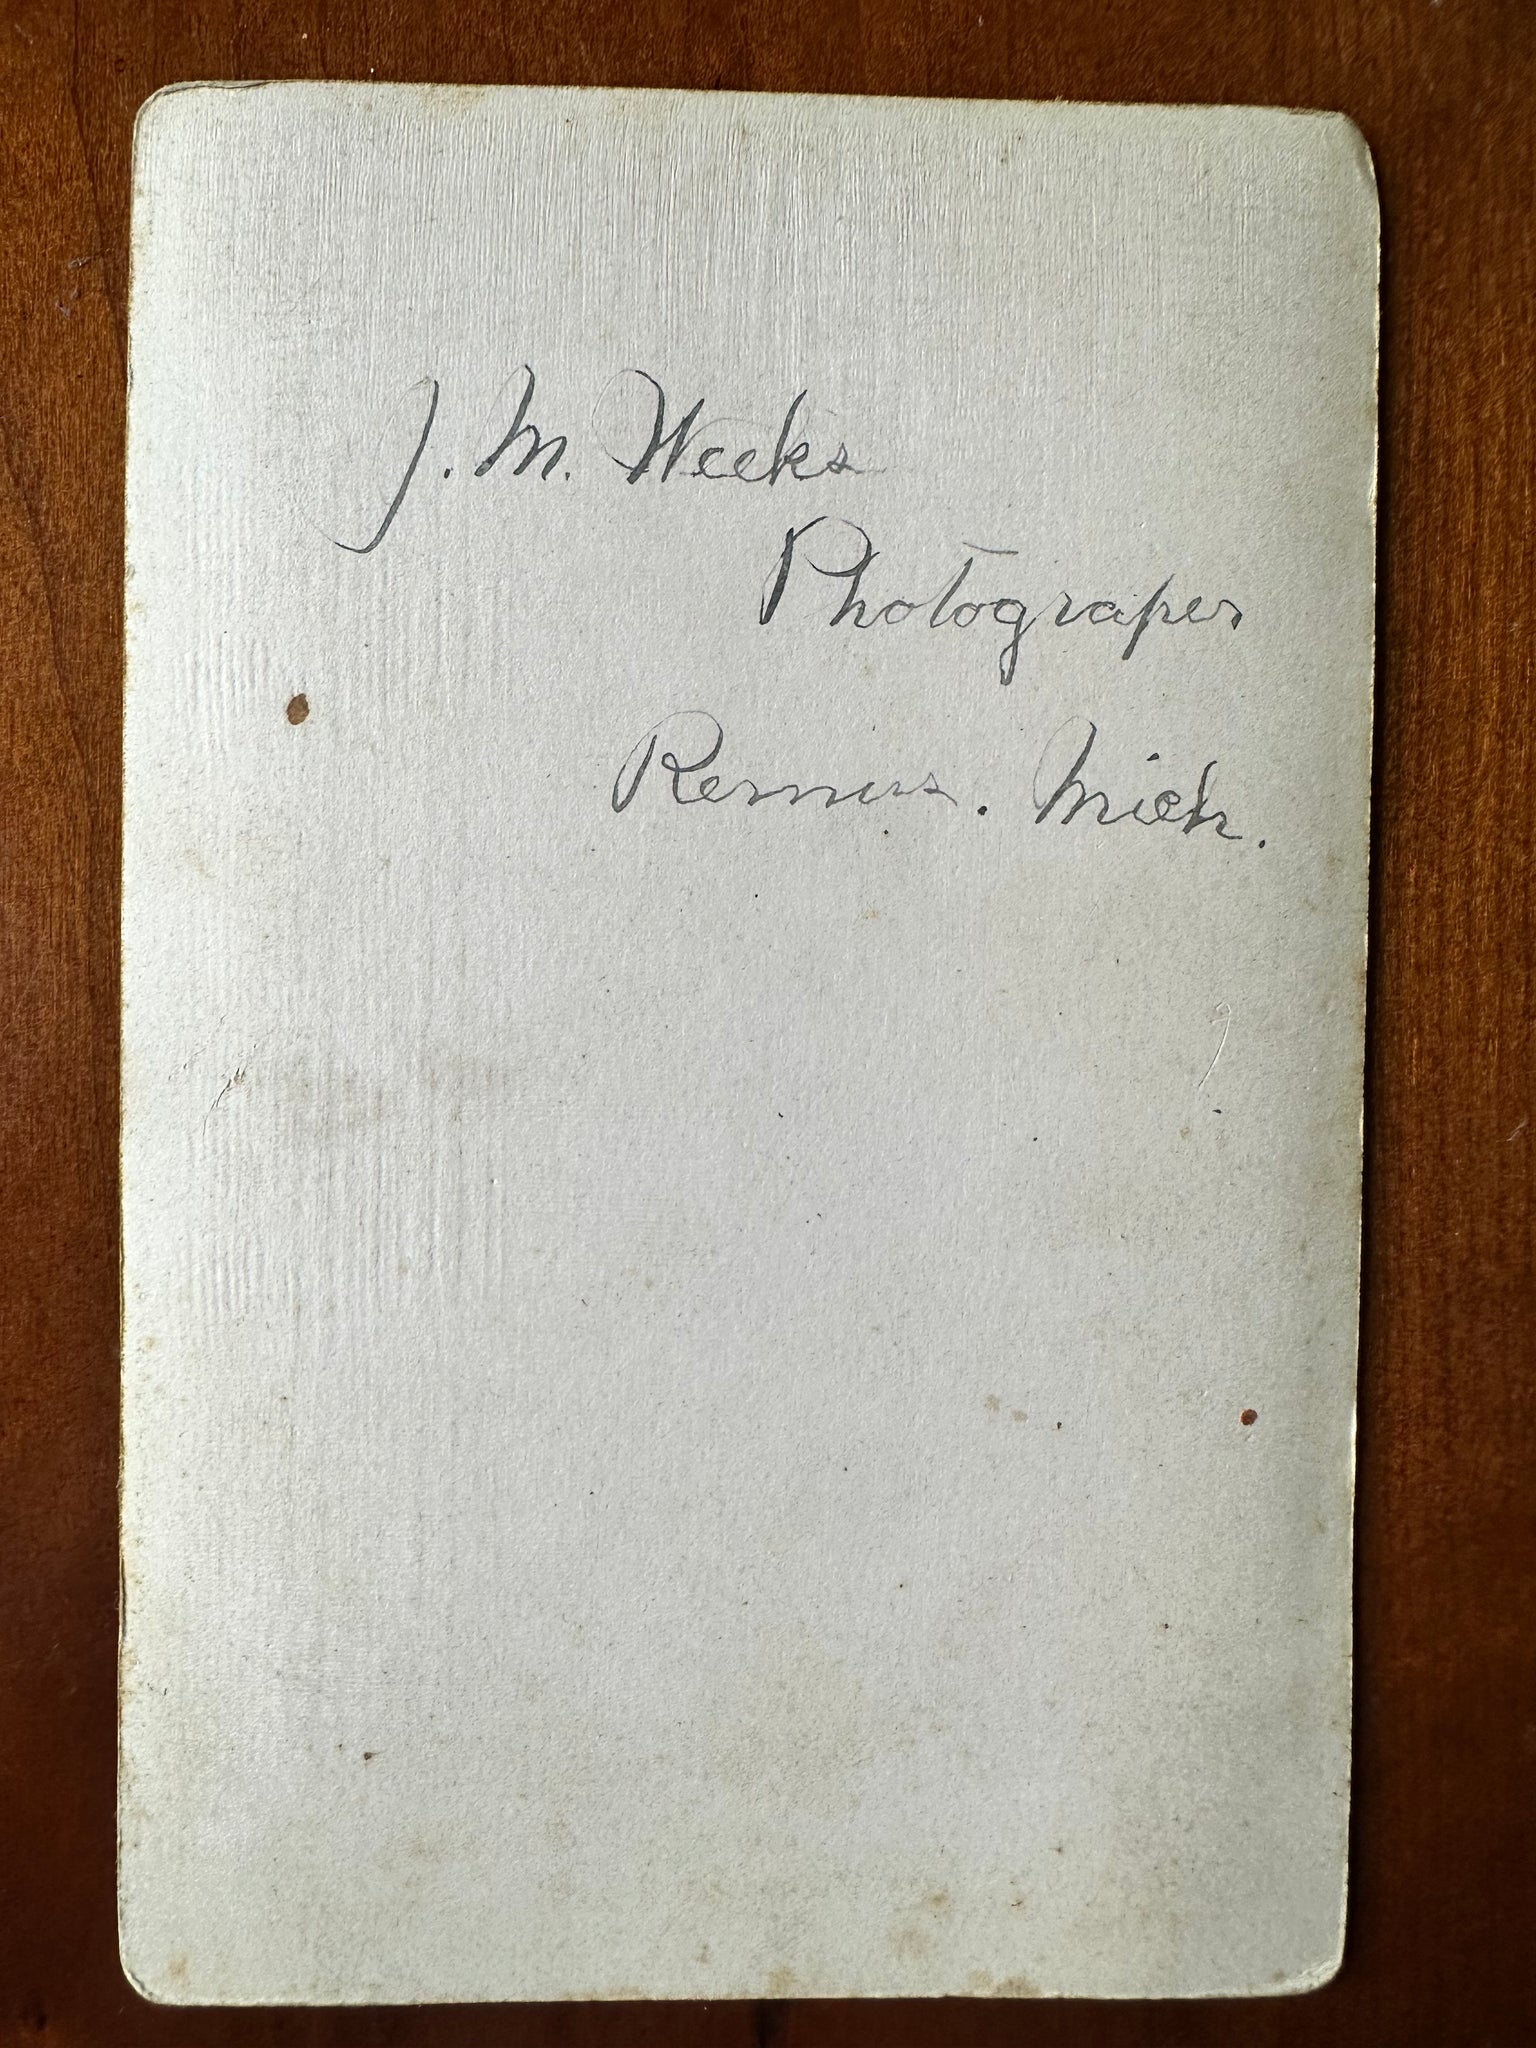 J. M. Weeks
Photograper
Remus. Mich.